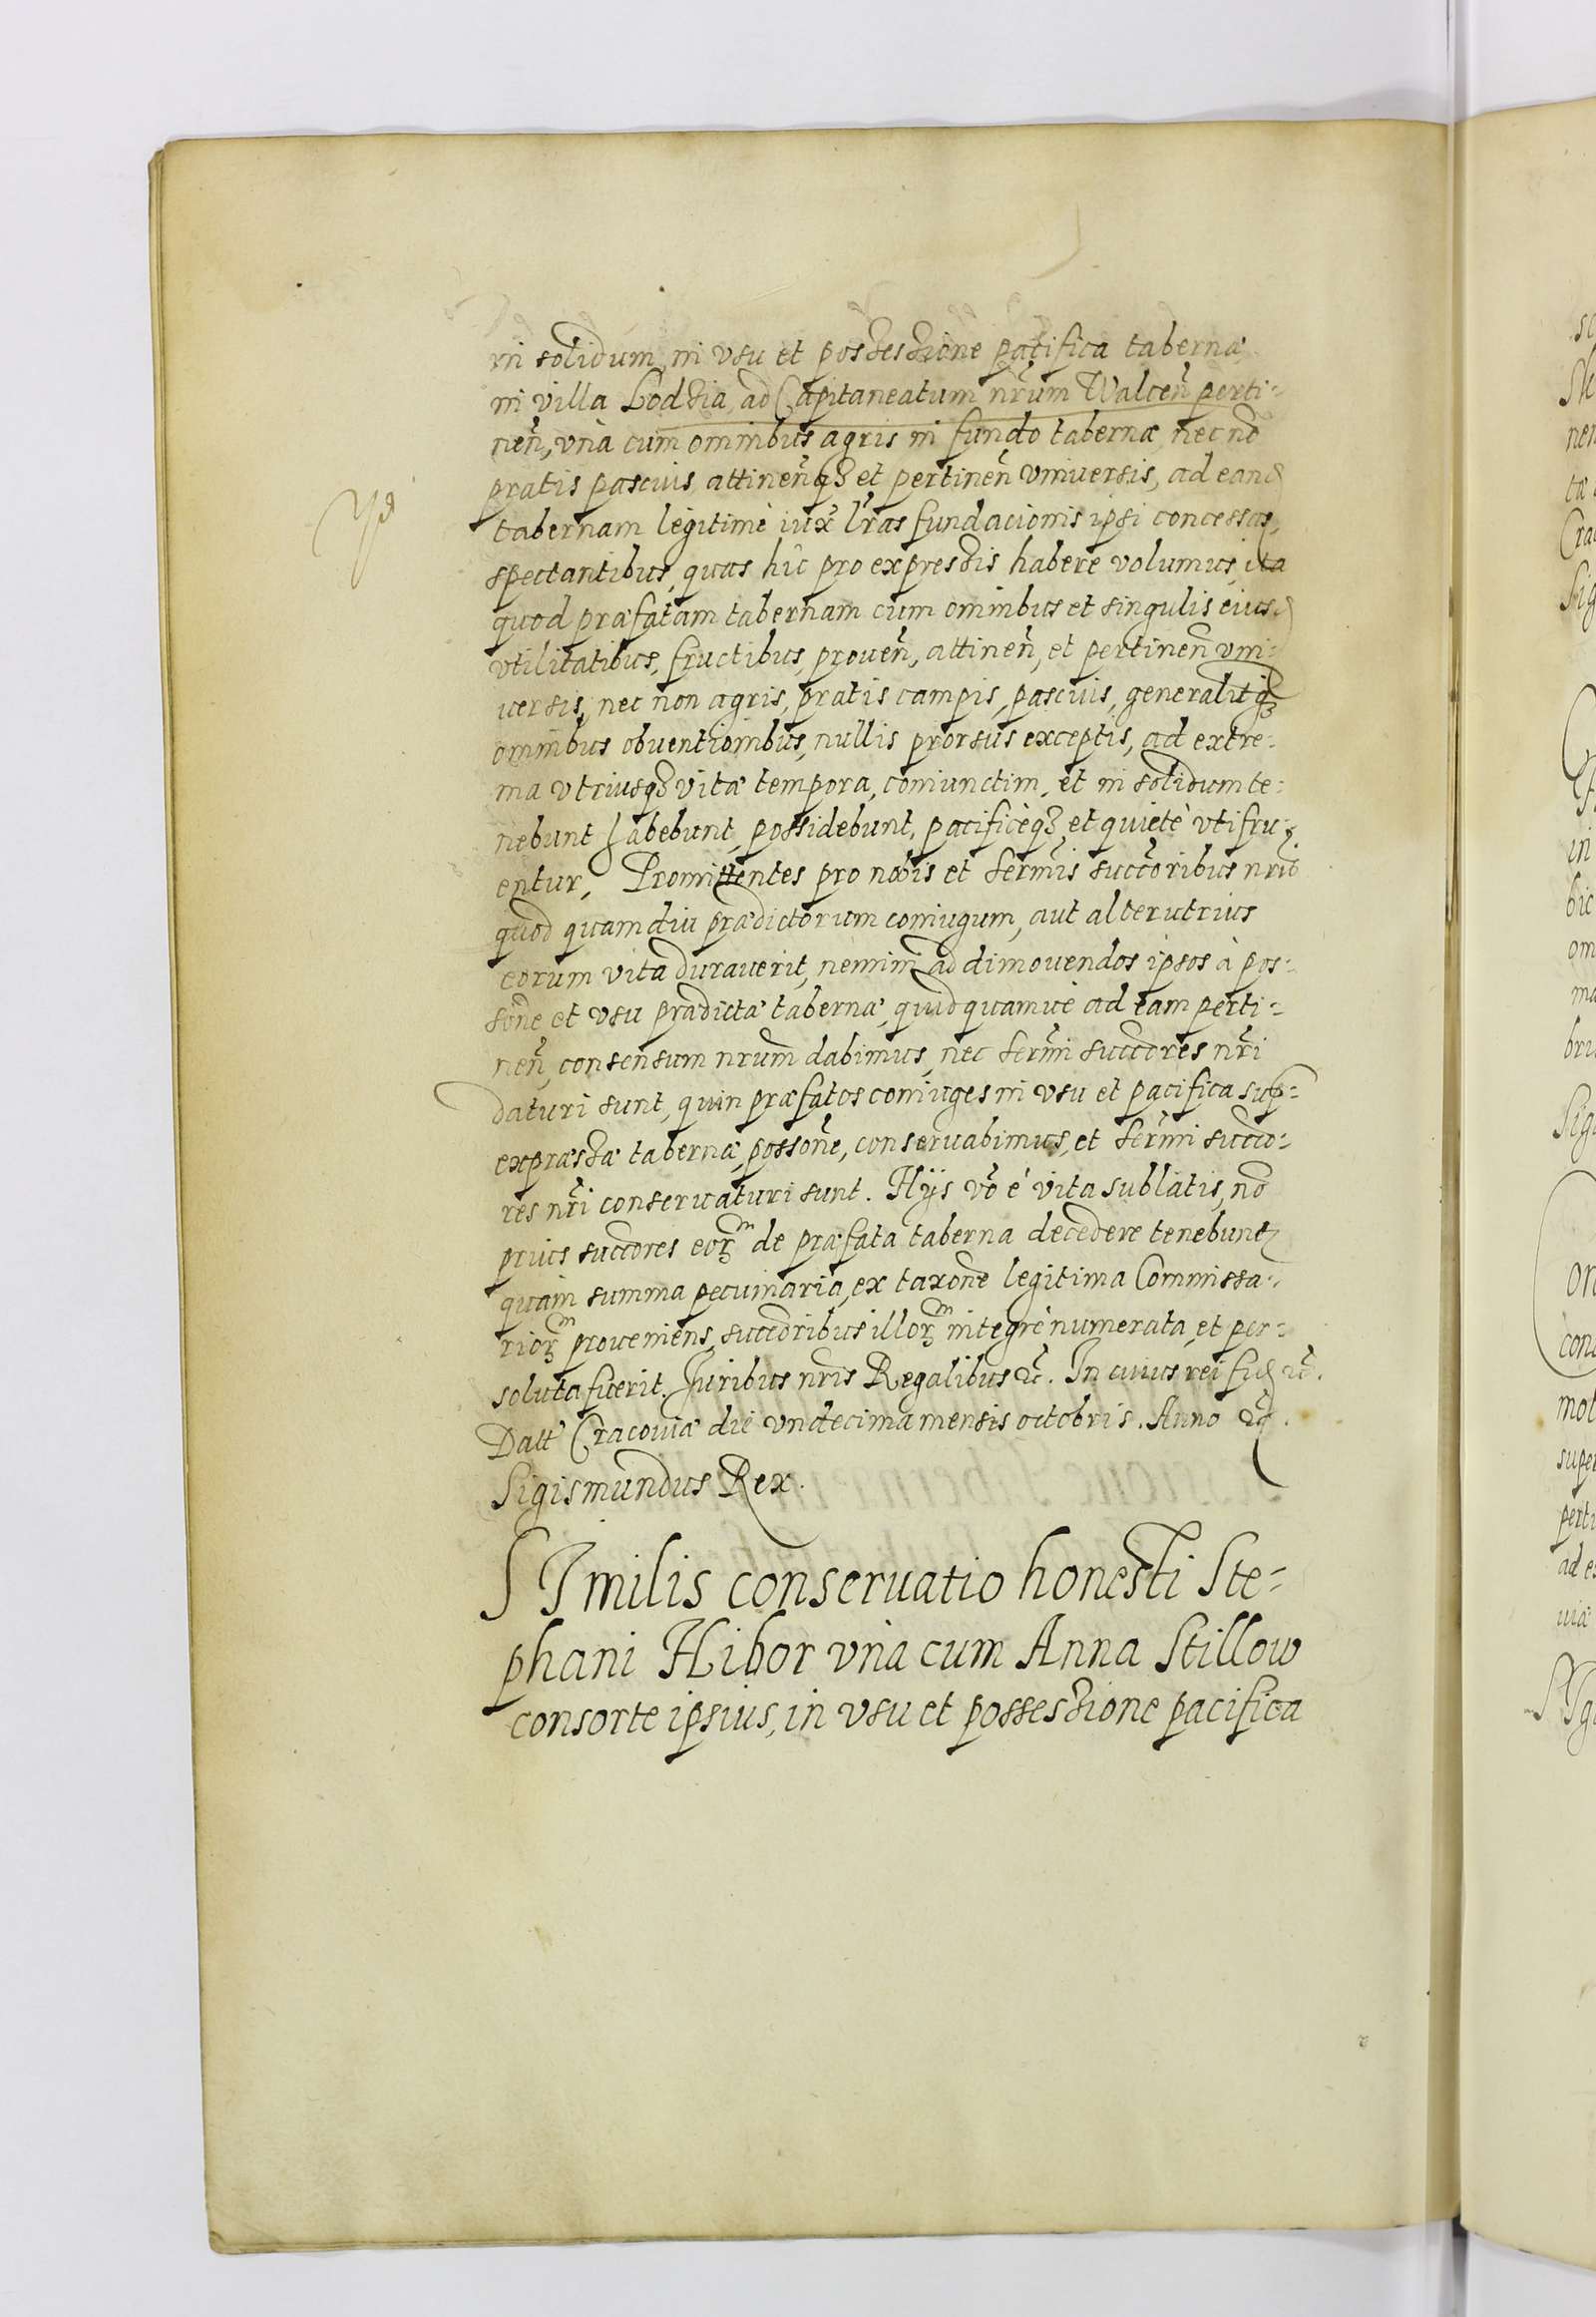 in solidum, in vsu et possessione pacifica tabernæ
in villa Lodzia, ad Capitaneatum nrũm Walceñ perti-
neñ, vnà cum omnibus agris in fundo tabernæ, nec nõ
pratis pascuis attineñqȝ et pertineñ vniuersis, ad eand
tabernam legitimè iux̃ lr̃as fundacionis ipsi concessas,
spectantibus, quas hîc pro expressis habere volumus, ita
quod præfatam tabernam cum omnibus et singulis eius
vtilitatibus, fructibus, proueñ, attineñ, et pertineñ vni-
uersis, nec non agris, pratis campis, pascuis, generalitqȝ
omnibus obuentionibus, nullis prorsus exceptis, ad extre-
ma vtriusqȝ vitæ tempora, coniunctim, et in solidum te-
nebunt habebunt, possidebunt, pacificèqȝ et quietè vtifru-
entur, Promittentes pro nobis et serm̃is succõribus nrĩs
quod quamdiu prædictorum coniugum, aut alterutrius
eorum vita durauerit, nemini ad dimouendos ipsos à pos-
sõne et vsu prædictæ tabernæ, quidquamuè ad eam perti-
neñ, consensum nrũm dabimus, nec serm̃i succõres nr̃i
daturi sunt, quin præfatos coniuges in vsu et pacifica sup-
expræssæ tabernæ, possõne, conseruabimus, et serm̃i succo-
res nr̃i conseruaturi sunt. Hÿs võ è vita sublatis, nõ
prius succõres eoꝝm de præfata taberna decedere tenebunt
quàm summa pecuniaria, ex taxõne legitima Commissa-
rioꝝm proueniens, succõribus illoꝝm integrè numerata, et per-
soluta fuerit. Juribus nrĩs Regalibus ꝛc̃. In cuius rei fid ꝛc̃.
Datt Cracouiæ die vndecima mensis octobris. Anno ꝛq.
Sigismundus Rex.
SImilis conseruatio honesti Ste-
phani Hibor vnà cum Anna Stillow
consorte ipsius, in vsu et possessione pacifica